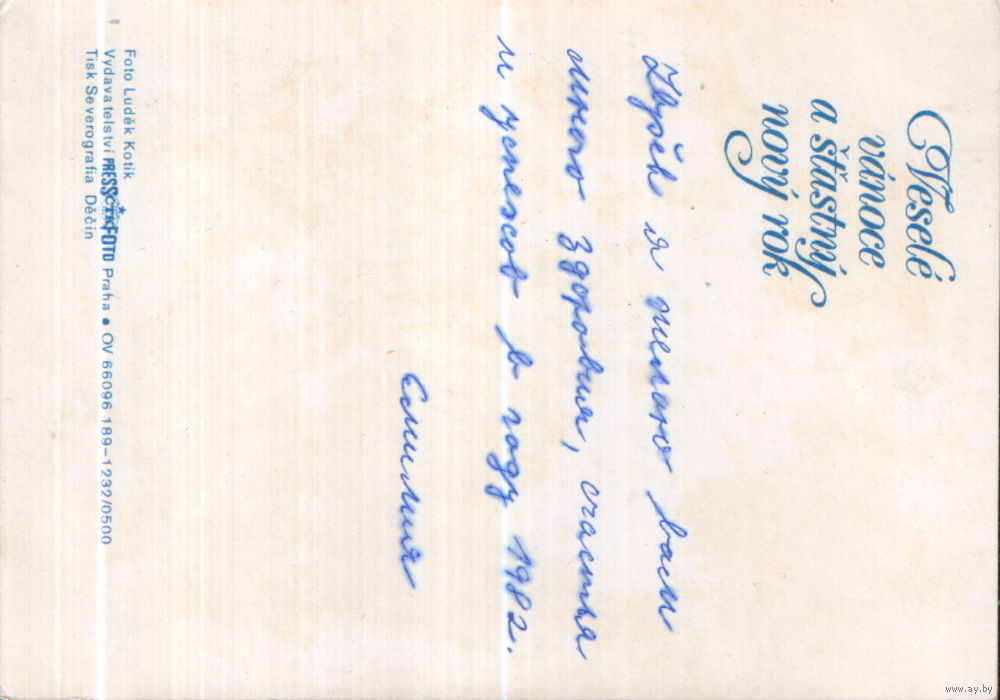 Veselé
vánoce
a šťastný
nový rok
и я желаю вам
много здоровия, счастья
и успехов в году 1982.
Емилия
Foto Luděk Kotík
Vydavatelství PRESSFOTO Praha • OV 66096 189-1232/0500
Tisk Severografia Děčín
www.ay.by